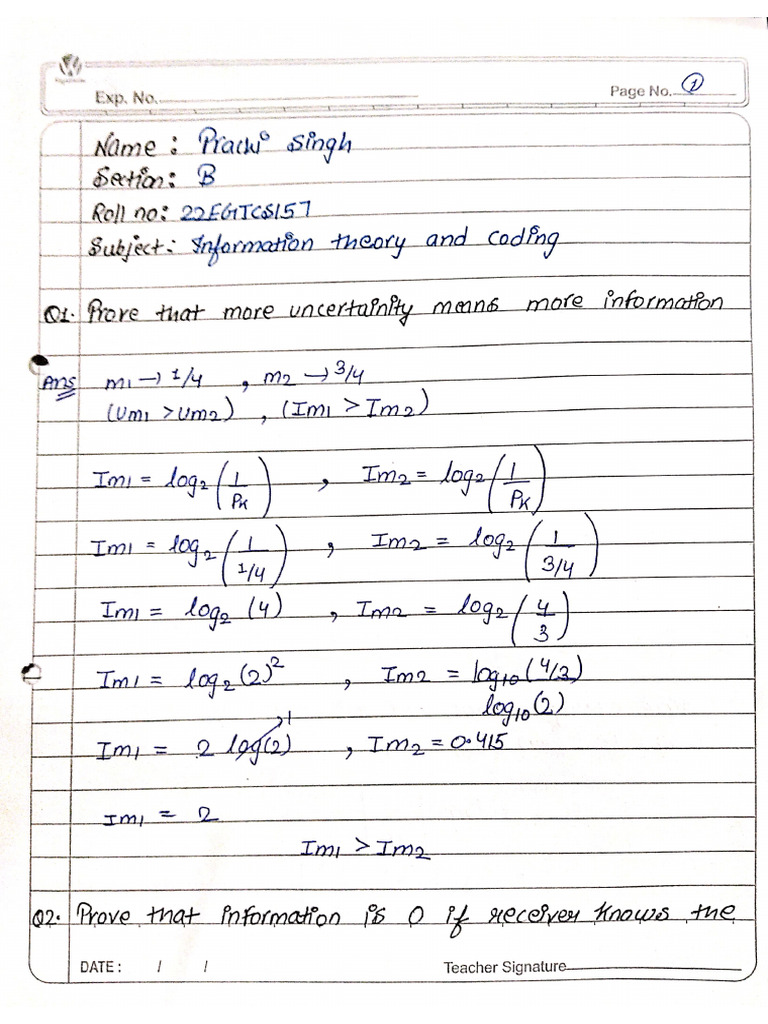 Exp. No.
Page No. 1
Name : Prachi Singh
Section: B
Roll no: 22EGTCS157
Subject: Information theory and coding
Q1. Prove that more uncertainity means more information
Ans m1 → 1/4 , m2 → 3/4
(Um1 > Um2) , (Im1 > Im2)
Im1 = log2 (1/PK) , Im2 = log2 (1/PK)
Im1 = log2 (1/1/4) , Im2 = log2 (1/3/4)
Im1 = log2 (4) , Im2 = log2 (4/3)
Im1 = log2 (2)² , Im2 = log10 (4/3)
log10 (2)
Im1 = 2 log(2) 1 , Im2 = 0.415
Im1 = 2
Im1 > Im2
Q2. Prove that information is 0 if receiver knows the
DATE : / /
Teacher Signature